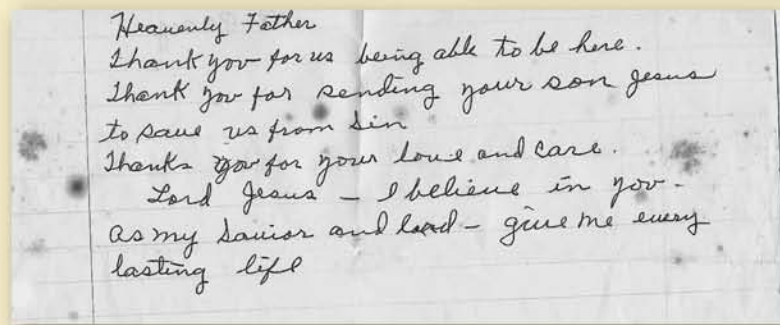 Heavenly Father
Thank you for us being able to be here.
Thank you for sending your son Jesus
to save us from sin
Thanks you for your love and care.
Lord Jesus – I believe in you -
as my Savior and lord – give me every
lasting life